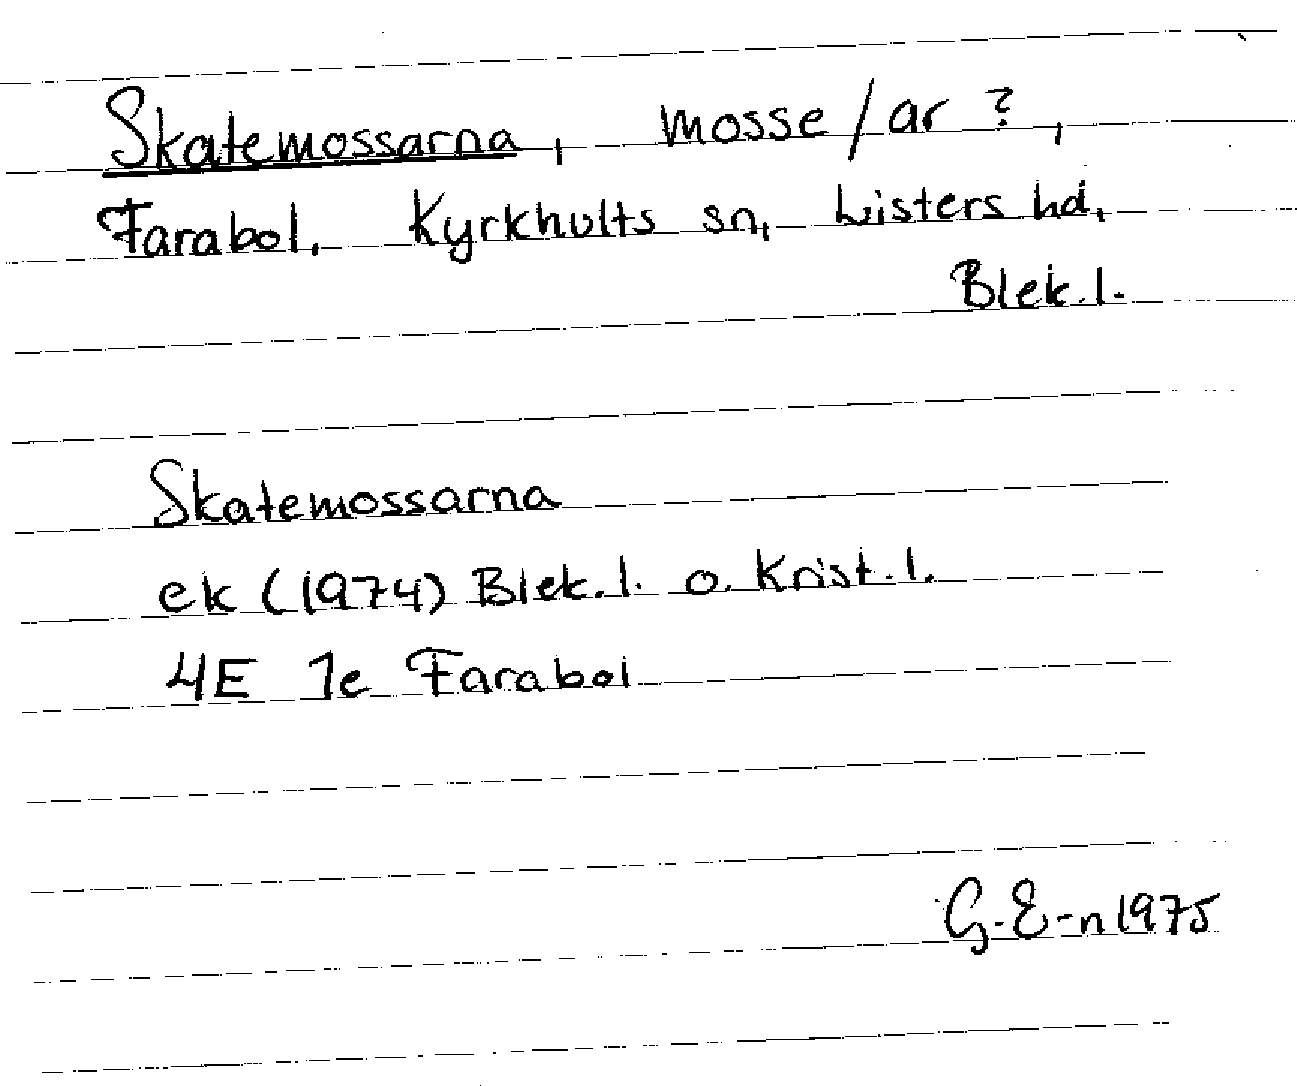 Skatemossarna, mosse/ar ?,
Farabol, Kyrkhults sn, Listers hd,
Blek.l.
Skatemossarna
ek (1974) Blek.l. o. Krist.l.
4E 1e Farabol
G.E-n 1975